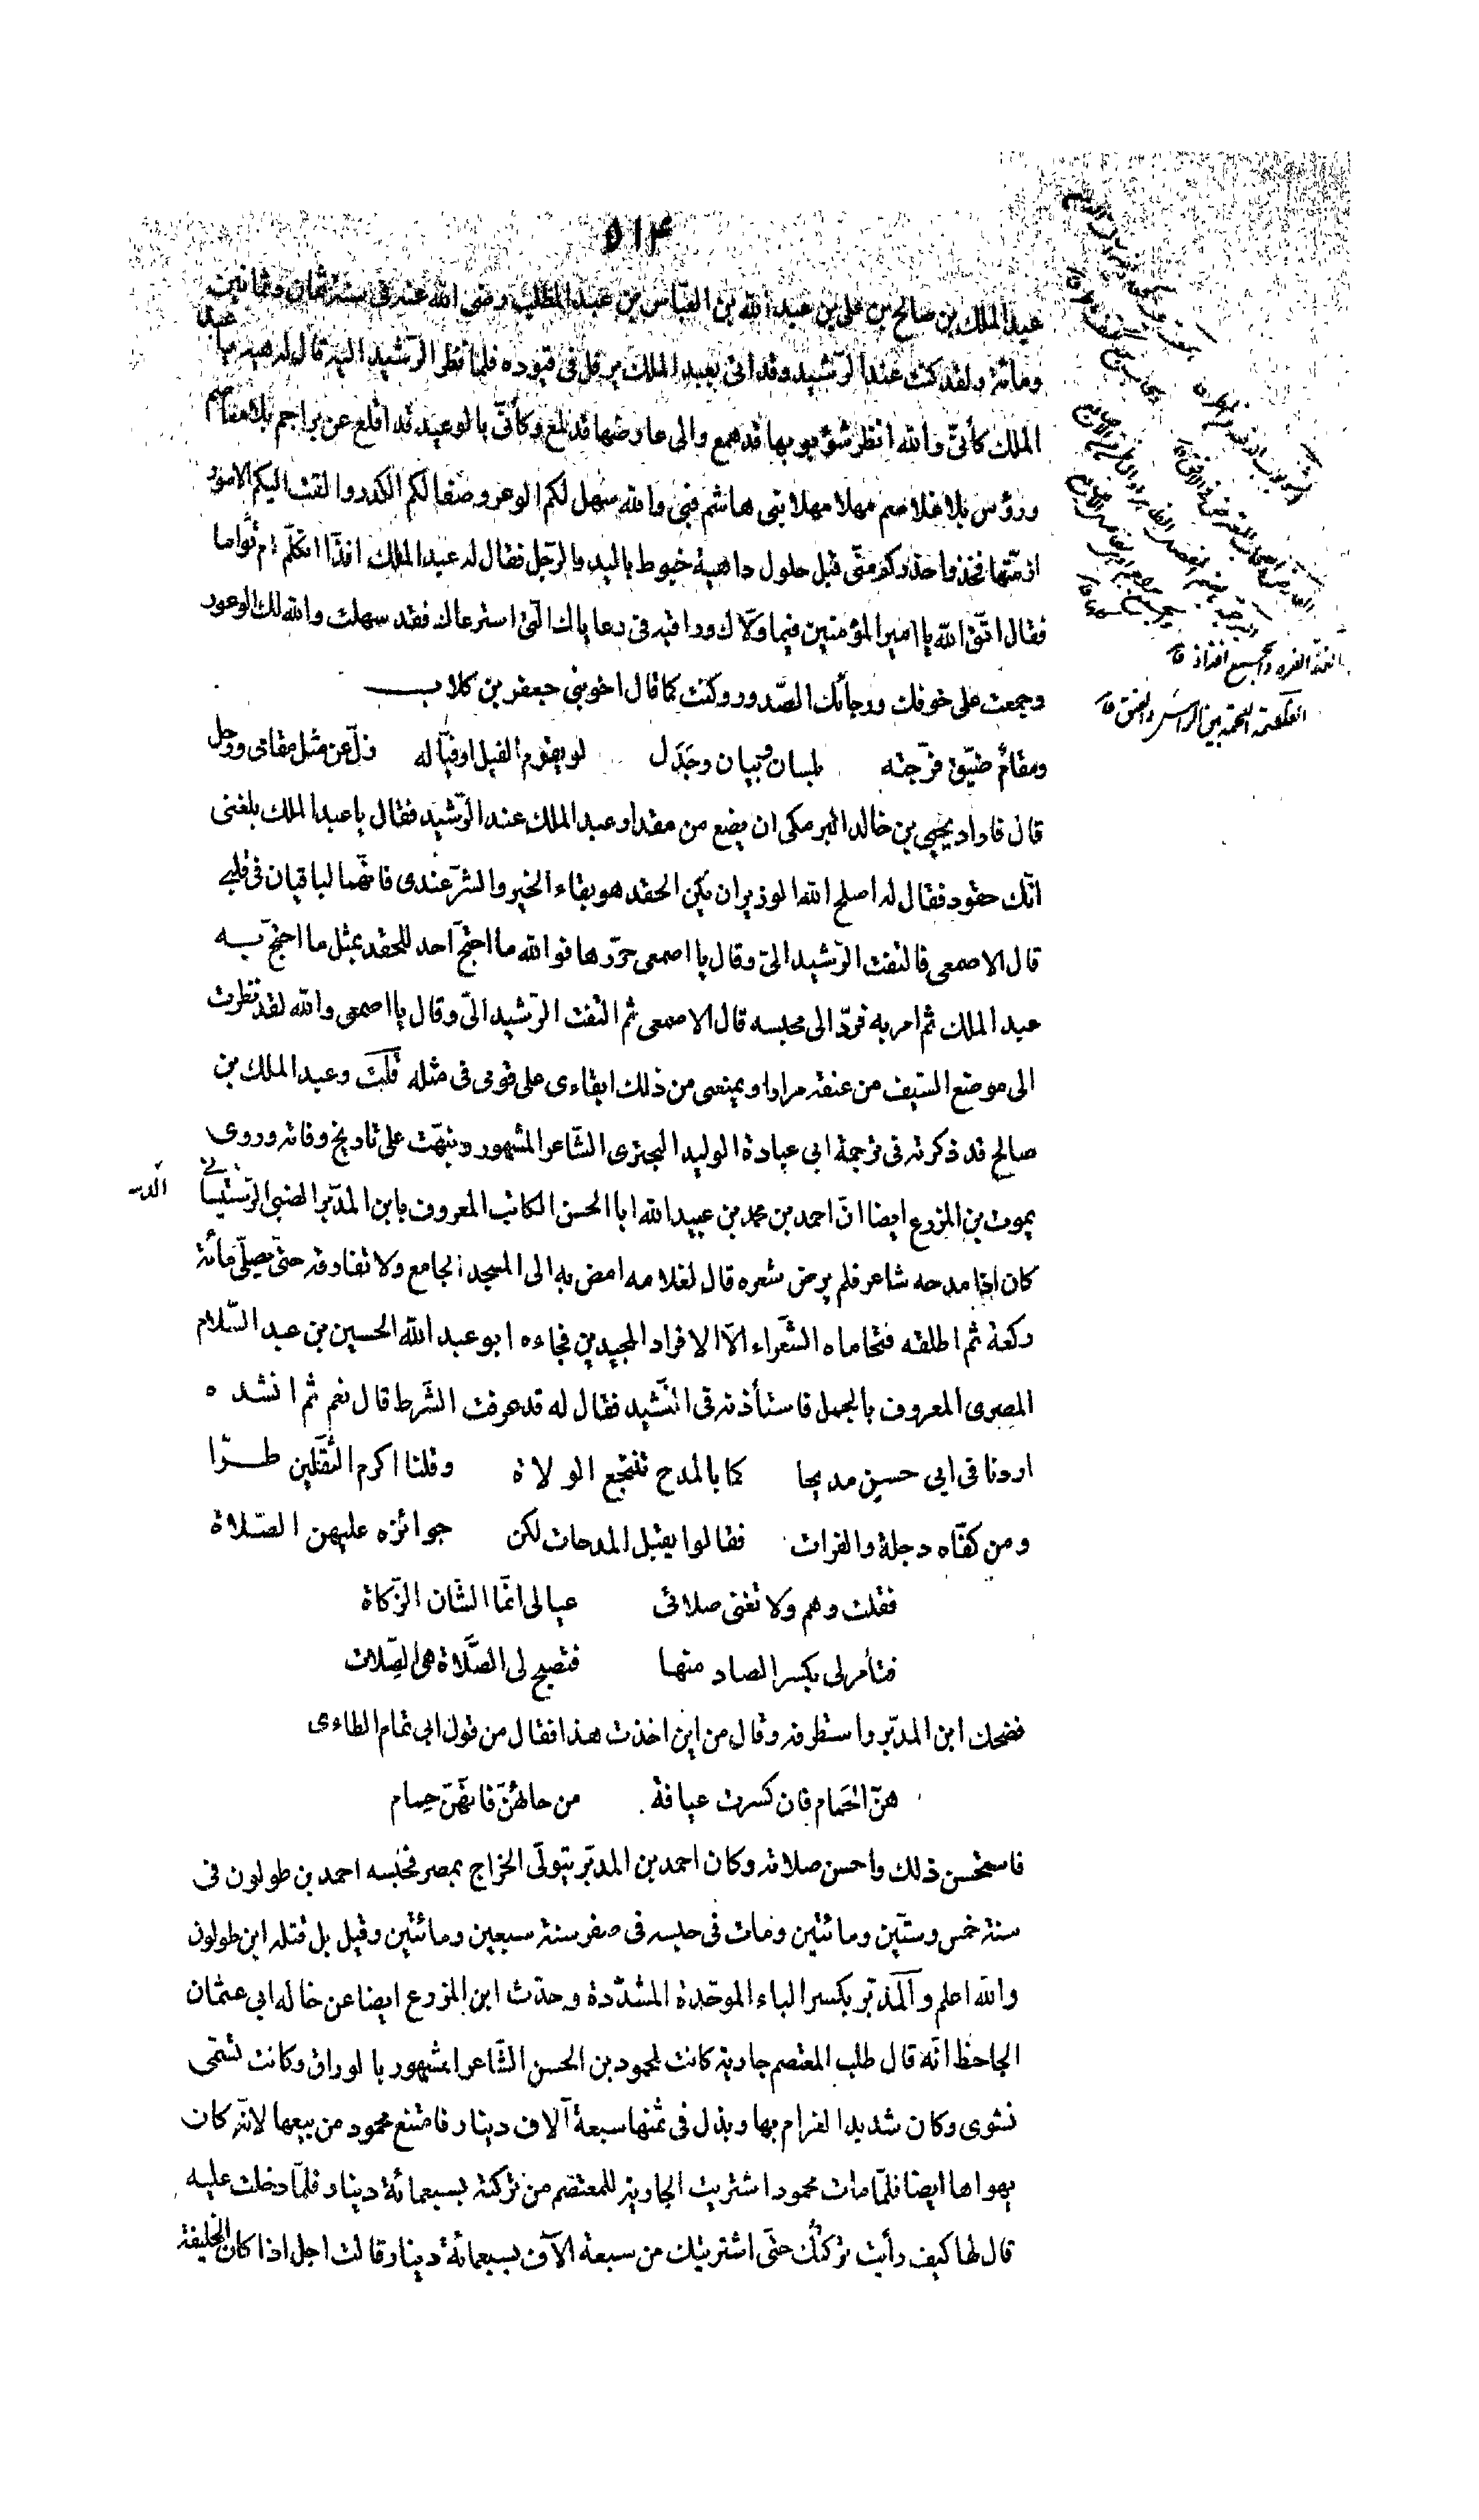 ۵۱۴
عبد الملك بن صالح بن على بن عبد الله بن العبّاس بن عبد المطلب رضى الله عنه فى سنة ثمان وثمانين
ومائة ولقد كنت عند الرّشيد وقد اتى بعبد الملك يرفل فى قيوده فلما نظر الرّشيد اليه قال له هيه يا عبد
الملك كأنّى والله انظر شؤبوبها قد همع والى عارضها قد لمع وكأنّى بالوعيد قد اقلع عن براجم بلا معاصم
ورؤس بلا غلاصم مهلا مهلا بنى هاشم فبى والله سهل لكم الوعر وصفا لكم الكدر والقت اليكم الامور
ازمّتها فخذوا حذركم منّى قبل حلول داهية خبوط باليد والرّجل فقال له عبد الملك افذّا اتكلّم ام توّاما
فقال اتّق الله يا امير المؤمنين فيما ولّاك وراقبه فى رعاياك الّتى استرعاك فقد سهلت والله لك الوعور
وجمعت على خوفك ورجائك الصّدور وكنت كما قال اخو بنى جعفر بن كلاب
ومقام ضيّق فرّجته بلسان وبيان وجدل لو يقوم الفيل او فيّاله زلّ عن مثل مقامى وزحل
قال فاراد يحيى بن خالد البرمكى ان يضع من مقدار عبد الملك عند الرّشيد فقال يا عبد الملك بلغنى
انّك حقود فقال له اصلح الله الوزير ان يكن الحقد هو بقاء الخير والشرّ عندى فانّهما لباقيان فى قلبى
قال الاصمعى فالتفت الرّشيد الىّ وقال يا اصمعى حرّرها فو الله ما احتجّ احد للحقد بمثل ما احتجّ به
عبد الملك ثم امر به فردّ الى محبسه قال الاصمعى ثم التفت الرّشيد الىّ وقال يا اصمعى والله لقد نظرت
الى موضع السّيف من عنقه مرارا ويمنعنى من ذلك ابقاءى على قومى فى مثله قلت وعبد الملك بن
صالح قد ذكرته فى ترجمة ابى عبادة الوليد البحترى الشّاعر المشهور ونبّهت على تاريخ وفاته وروى
يموت بن المزرع ايضا انّ احمد بن محمد بن عبيد الله ابا الحسن الكاتب المعروف بابن المدبّر الضبى الرّستيسانى
كان اذا مدحه شاعر فلم يرض شعره قال لغلامه امض به الى المسجد الجامع ولا تفارقه حتّى يصلّى مائة
ركعة ثم اطلقه فتحاماه الشّعراء الّا الافراد المجيدين فجاءه ابو عبد الله الحسين بن عبد السّلام
المصرى المعروف بالجمل فاستأذنه فى النّشيد فقال له قد عرفت الشّرط قال نعم ثم انشده
اردنا فى ابى حسين مديحا كما بالمدح تنتجع الولاة وقلنا اكرم الثّقلين طرّا
ومن كفّاه دجلة والفرات فقالوا يقبل المدحات لكن جوائزه عليهن الصّلاة
فقلت وهم ولا تغنى صلاتى عيالى انّما الشّان الزّكاة
فتأمر لى بكسر الصاد منها فتصبح لى الصّلاة هى الصّلات
فضحك ابن المدبّر واستظرفه وقال من اين اخذت هذا فقال من قول ابى تمام الطاءى
هنّ الحَمام فان كسرت عيافة من حائهنّ فانّهنّ حِمام
فاستحسن ذلك واحسن صلاته وكان احمد بن المدبّر يتولّى الخراج بمصر فحبسه احمد بن طولون فى
سنة خمس وستّين ومائتين ومات فى حبسه فى صفر سنة سبعين ومائتين وقيل بل قتله ابن طولون
والله اعلم والمدبّر بكسر الباء الموحّدة المشدّدة وحدّث ابن المزرع ايضا عن خاله ابى عثمان
الجاحظ انّه قال طلب المعتصم جارية كانت لمحمود بن الحسن الشّاعر المشهور بالوراق وكانت تسمّى
نشوى وكان شديد الغرام بها وبذل فى ثمنها سبعة آلاف دينار فامتنع محمود من بيعها لانّه كان
يهواها ايضا فلمّا مات محمود اشتريت الجارية للمعتصم من تركته بسبعمائة دينار فلمّا دخلت عليه
قال لها كيف رأيت تركتك حتّى اشتريتك من سبعة آلاف بسبعمائة دينار قالت اجل اذا كان الخليفة